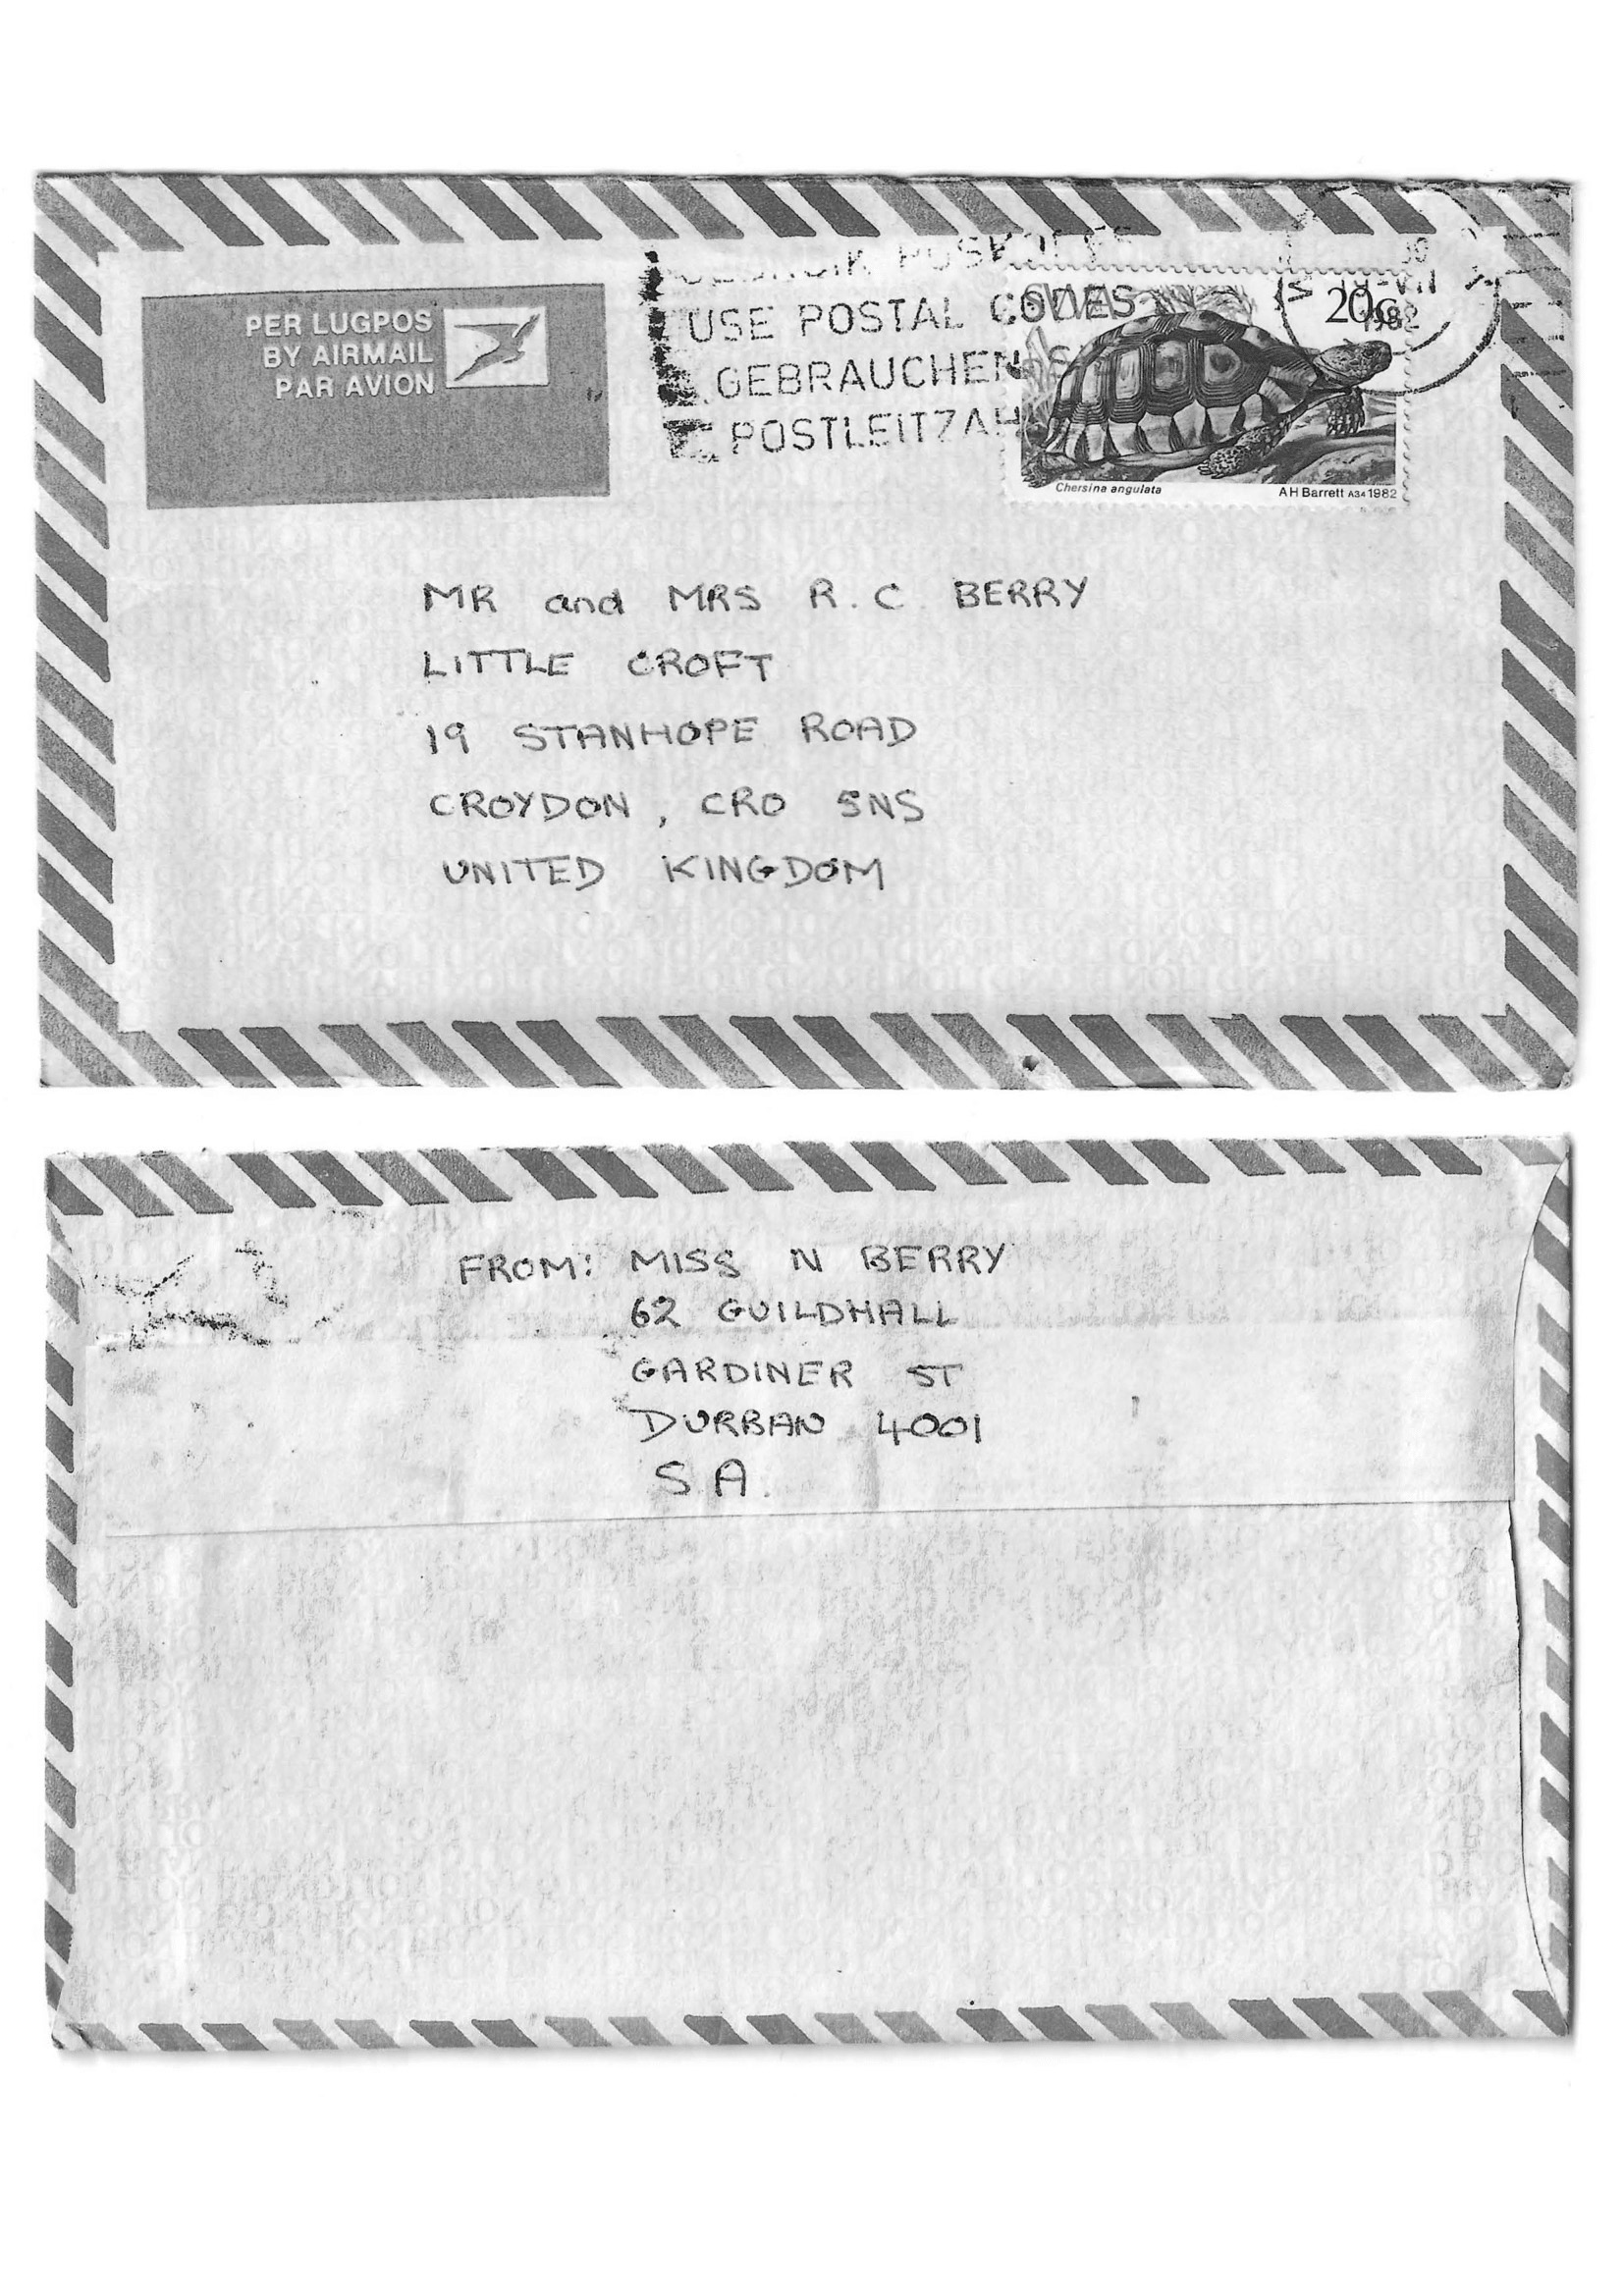 PER LUGPOS
BY AIRMAIL
PAR AVION
POSKODES
USE POSTAL CODES
GEBRAUCHEN S
POSTLEITZAH
SWA
20c
VII
1982
Chersina angulata
A H Barrett A34 1982
MR and MRS R. C. BERRY
LITTLE CROFT
19 STANHOPE ROAD
CROYDON, CRO 5NS
UNITED KINGDOM
FROM: MISS N BERRY
62 GUILDHALL
GARDINER ST
DURBAN 4001
S.A.